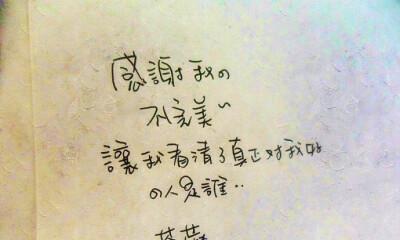 感謝我の
不完美〃
讓我看清了真正对我好
の人是誰..